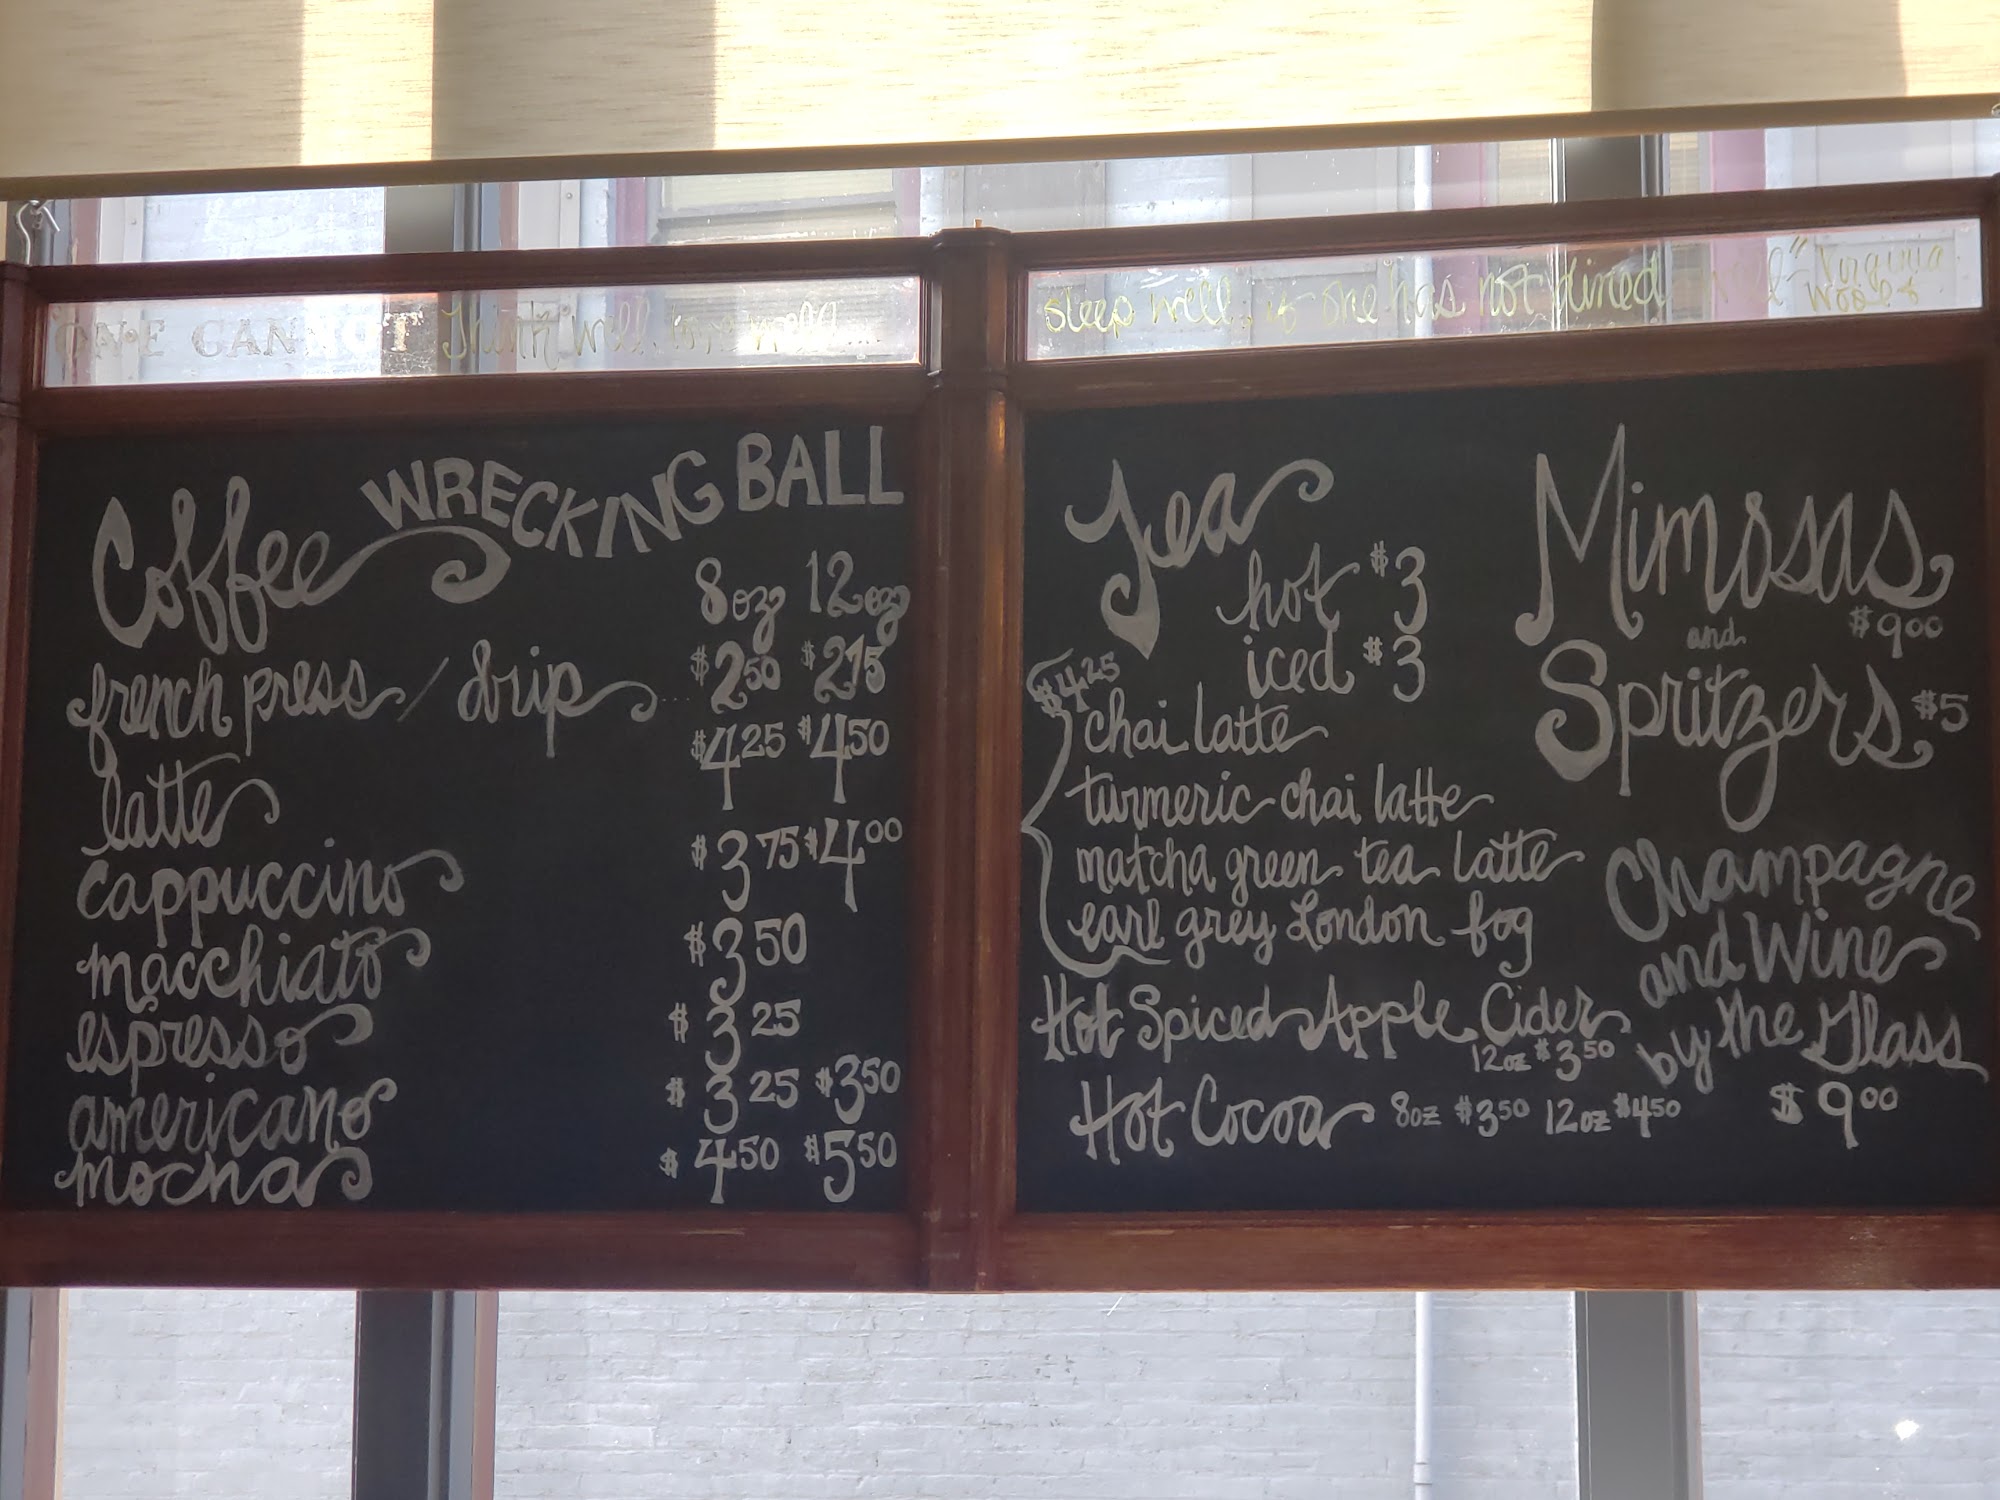 ONE CANNOT Think well, love well
sleep well, if one has not dined well" Virginia
Woolf
Coffee WRECKING BALL
8oz 12oz
french press / drip $2.50 $2.75
latte $4.25 $4.50
cappuccino $3.75 $4.00
macchiato $3.50
espresso $3.25
americano $3.25 $3.50
mocha $4.50 $5.50
Tea
hot $3
iced $3
$4.25
chai latte
turmeric chai latte
matcha green tea latte
earl grey London fog
Hot Spiced Apple Cider
12oz $3.50
Hot Cocoa 8oz $3.50 12oz $4.50
Mimosas
$9.00
and
Spritzers $5
Champagne
and Wine
by the Glass
$9.00